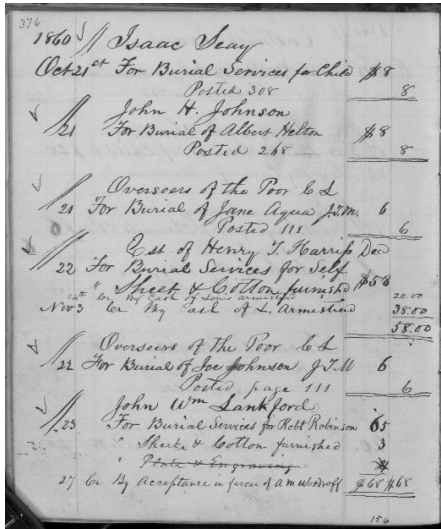 376
1860 // Isaac Seay
Oct 21st For Burial Services for Child $8
Posted 308 8
// John H. Johnson
21 For Burial of Albert Helton $8
Posted 268 8
// Overseers of the Poor C L
21 For Burial of Jane Aqua J.T.M. 6
Posted 111 6
// Est of Henry T. Harriss Decd
22 For Burial Services for Self
" Sheet & Cotton furnished $58
24th Cr By Cash of Louis Armistead 20.00
Nov 3 Cr By Cash of L. Armistead 38.00
58.00
// Overseers of the Poor C L
22 For Burial of Joe Johnson J.T.M 6
Posted page 111 6
// John Wm Lankford
23 For Burial Services for Robt Robinson 65
" Sheet & Cotton furnished 3
" Plate & Engraving
27 Cr By Acceptance in favour of A M Woodroff $68 $68
154